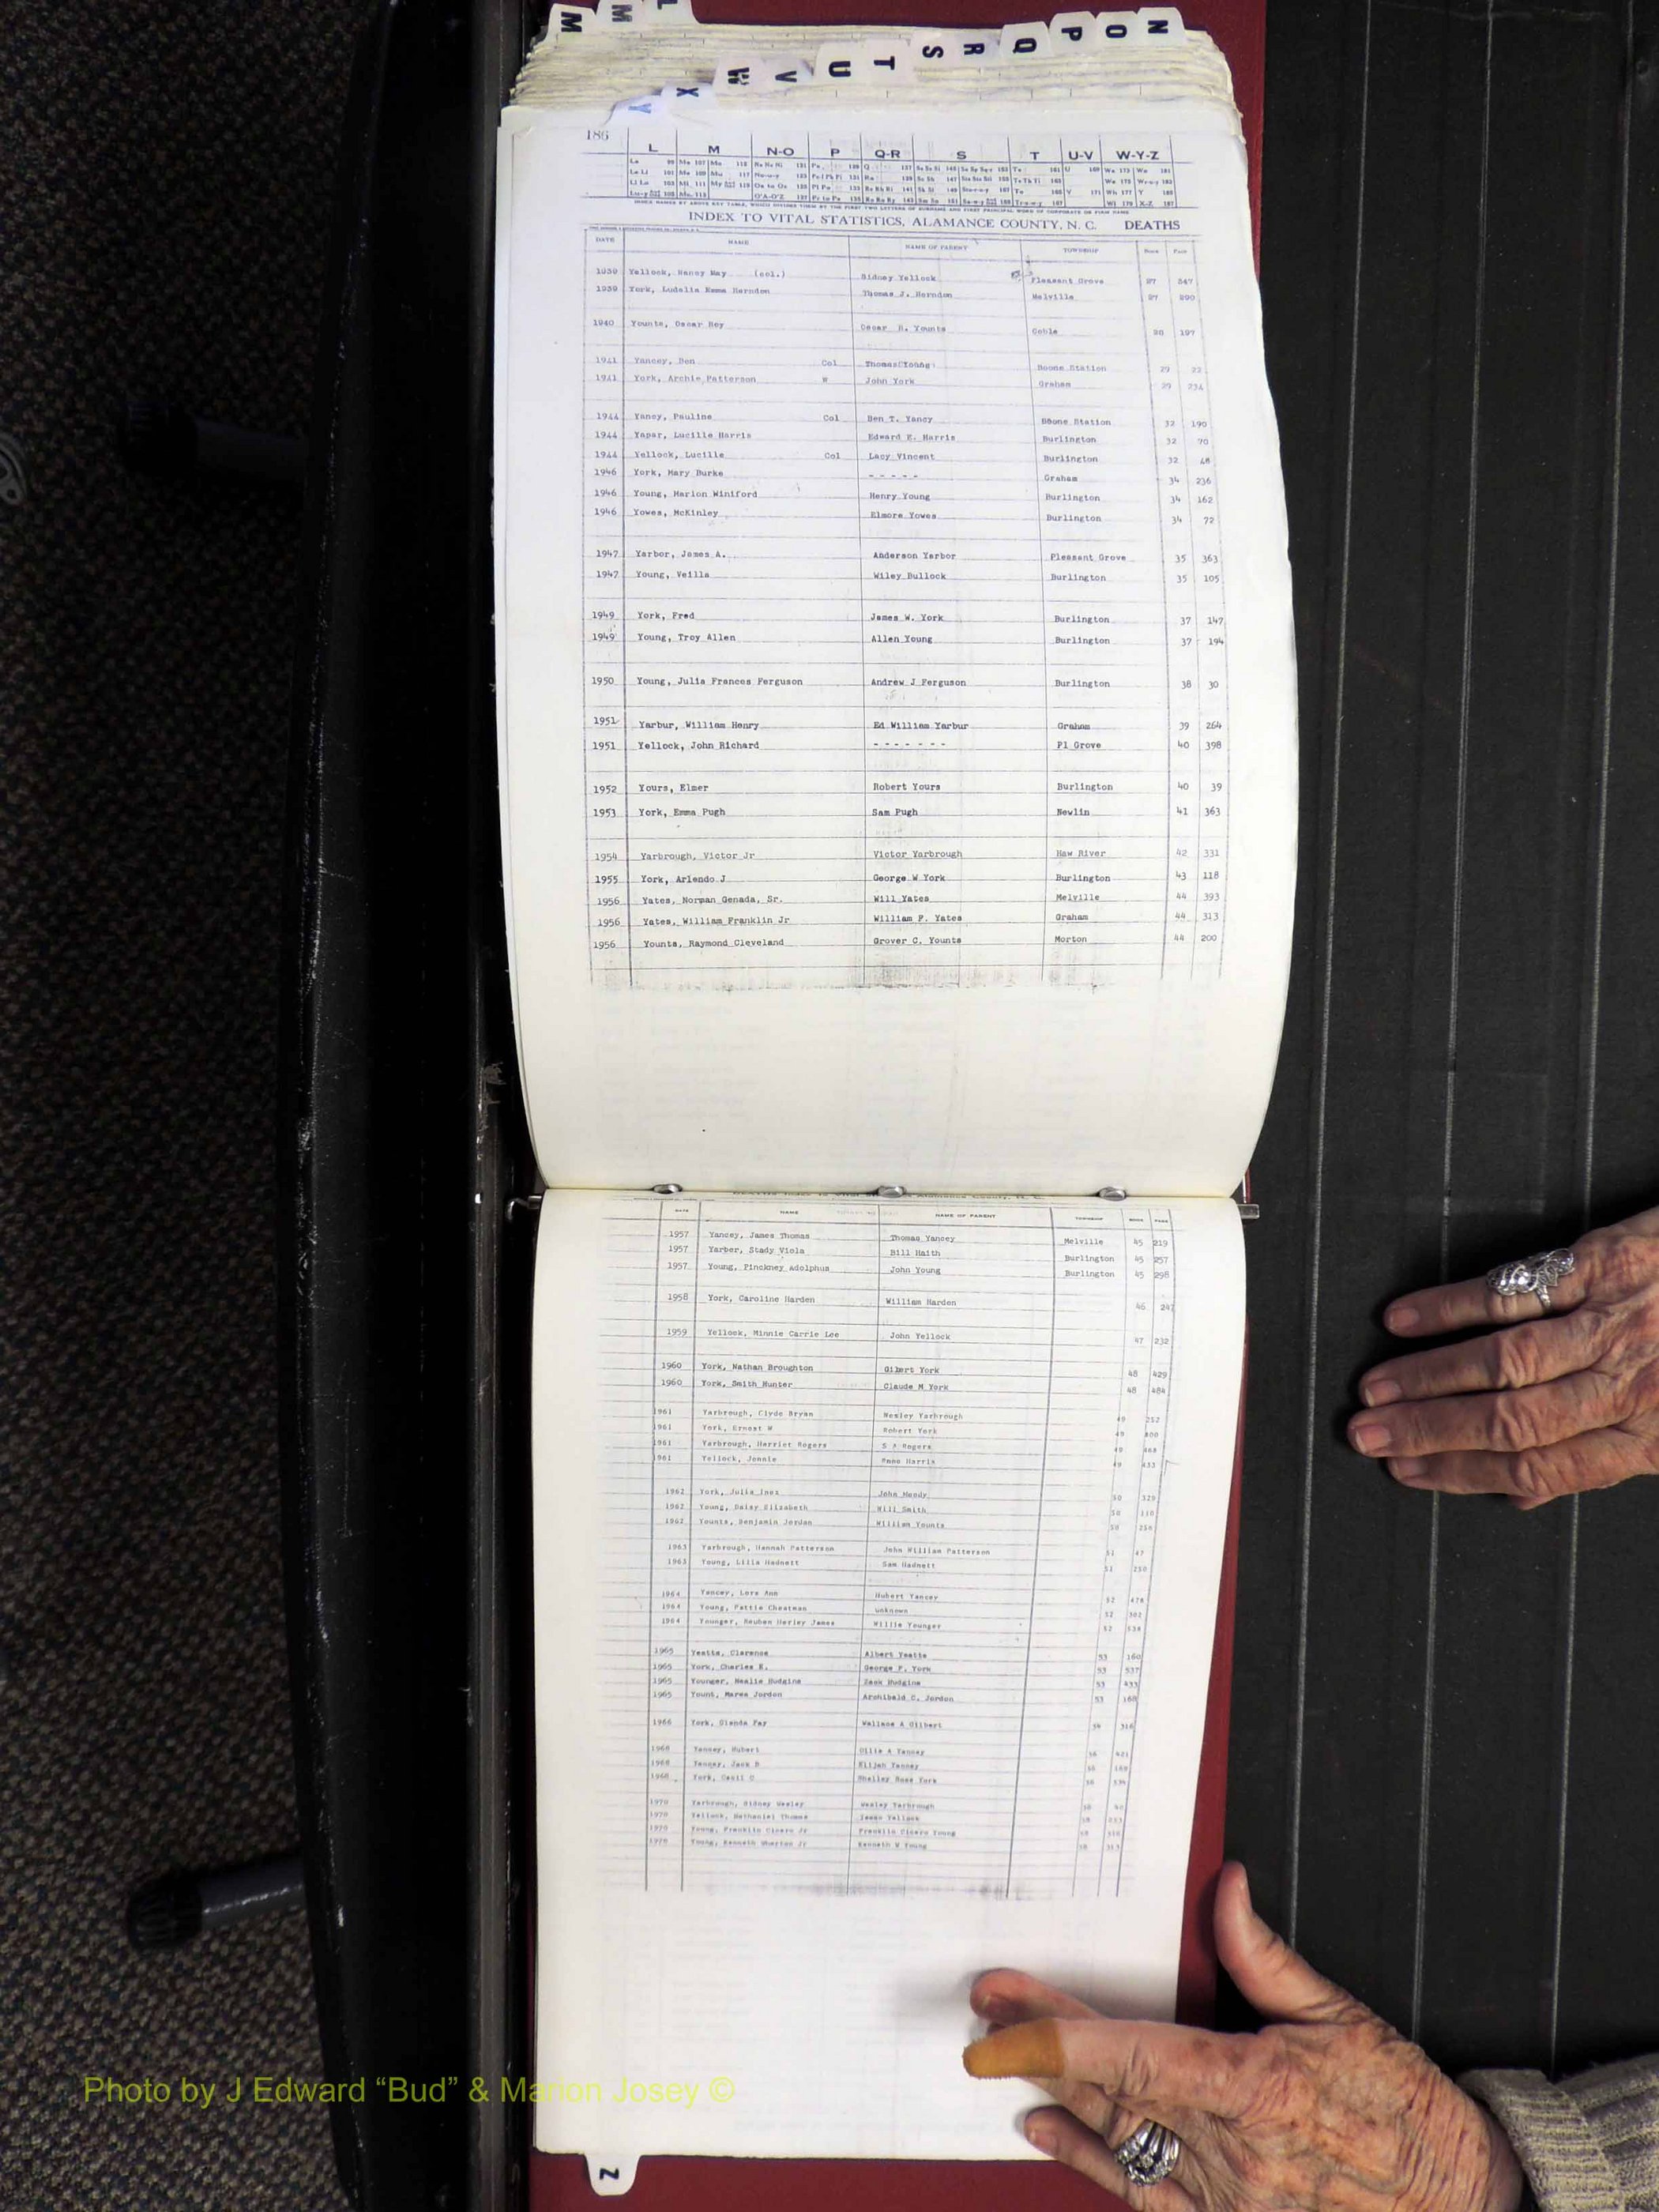 M M L
N O P Q R S T U V W X Y
186
L M N-O P Q-R S T U-V W-Y-Z
INDEX TO VITAL STATISTICS, ALAMANCE COUNTY, N. C. DEATHS
DATE NAME NAME OF PARENT TOWNSHIP BOOK PAGE
1939 Yellock, Nancy May (col.) Sidney Yellock Pleasant Grove 27 547
1939 York, Ludelia Emma Herndon Thomas J. Herndon Melville 27 290
1940 Younts, Oscar Roy Oscar R. Younts Coble 28 197
1941 Yancey, Ben Col Thomas Young Boone Station 29 22
1941 York, Archie Patterson W John York Graham 29 234
1944 Yancy, Pauline Col Ben T. Yancy Boone Station 32 190
1944 Yapar, Lucille Harris Edward E. Harris Burlington 32 70
1944 Yellock, Lucille Col Lacy Vincent Burlington 32 48
1946 York, Mary Burke - - - - - Graham 34 236
1946 Young, Marion Winiford Henry Young Burlington 34 162
1946 Yowes, McKinley Elmore Yowes Burlington 34 72
1947 Yarbor, James A. Anderson Yarbor Pleasant Grove 35 363
1947 Young, Veilla Wiley Bullock Burlington 35 105
1949 York, Fred James W. York Burlington 37 147
1949 Young, Troy Allen Allen Young Burlington 37 194
1950 Young, Julia Frances Ferguson Andrew J Ferguson Burlington 38 30
1951 Yarbur, William Henry Ed William Yarbur Graham 39 264
1951 Yellock, John Richard - - - - - - - Pl Grove 40 398
1952 Yours, Elmer Robert Yours Burlington 40 39
1953 York, Emma Pugh Sam Pugh Newlin 41 363
1954 Yarbrough, Victor Jr Victor Yarbrough Haw River 42 331
1955 York, Arlendo J George W York Burlington 43 118
1956 Yates, Norman Genada, Sr. Will Yates Melville 44 393
1956 Yates, William Franklin Jr William F. Yates Graham 44 313
1956 Younts, Raymond Cleveland Grover C. Younts Morton 44 200
DATE NAME NAME OF PARENT TOWNSHIP BOOK PAGE
1957 Yancey, James Thomas Thomas Yancey Melville 45 219
1957 Yarber, Stady Viola Bill Haith Burlington 45 257
1957 Young, Pinckney Adolphus John Young Burlington 45 298
1958 York, Caroline Harden William Harden 46 247
1959 Yellock, Minnie Carrie Lee John Yellock 47 232
1960 York, Nathan Broughton Gilbert York 48 429
1960 York, Smith Hunter Claude M York 48 484
1961 Yarbrough, Clyde Bryan Wesley Yarbrough 49 252
1961 York, Ernest W Robert York 49
1961 Yarbrough, Harriet Rogers Rogers 49 468
1961 Yellock, Jennie Harris 49 433
1962 York, Julia Inez John Moody 50 329
1962 Young, Daisy Elizabeth Will Smith 50 110
1962 Younts, Benjamin Jordan William Younts 50 258
1963 Yarbrough, Hannah Patterson John William Patterson 51 47
1963 Young, Lilla Hadnett Sam Hadnett 51 250
1964 Yancey, Lora Ann Hubert Yancey 52 478
1964 Young, Pattie Cheatman unknown 52 302
1964 Younger, Reuben Herley James Willie Younger 52 538
1965 Yeatts, Clarence Albert Yeatts 53 160
1965 York, Charles E. George F. York 53 537
1965 Younger, Nealie Hudgins Zack Hudgins 53 433
1965 Yount, Maree Jordon Archibald C. Jordon 53 168
1966 York, Glenda Fay Wallace A Gilbert 54 316
1968 Yancey, Hubert Ollie A Yancey 56 421
1968 Yancey, Jack D Elijah Yancey 56
1968 York, Cecil C Shelley Ross York 56
1970 Yarbrough, Sidney Wesley Wesley Yarbrough 58
1970 Yellock, Nathaniel Thomas Yellock 58
1970 Young, Franklin Cicero Jr Franklin Cicero Young 58
1970 Young, Kenneth Wharton Jr Kenneth W Young 58
Photo by J Edward “Bud” & Marion Josey ©
Z